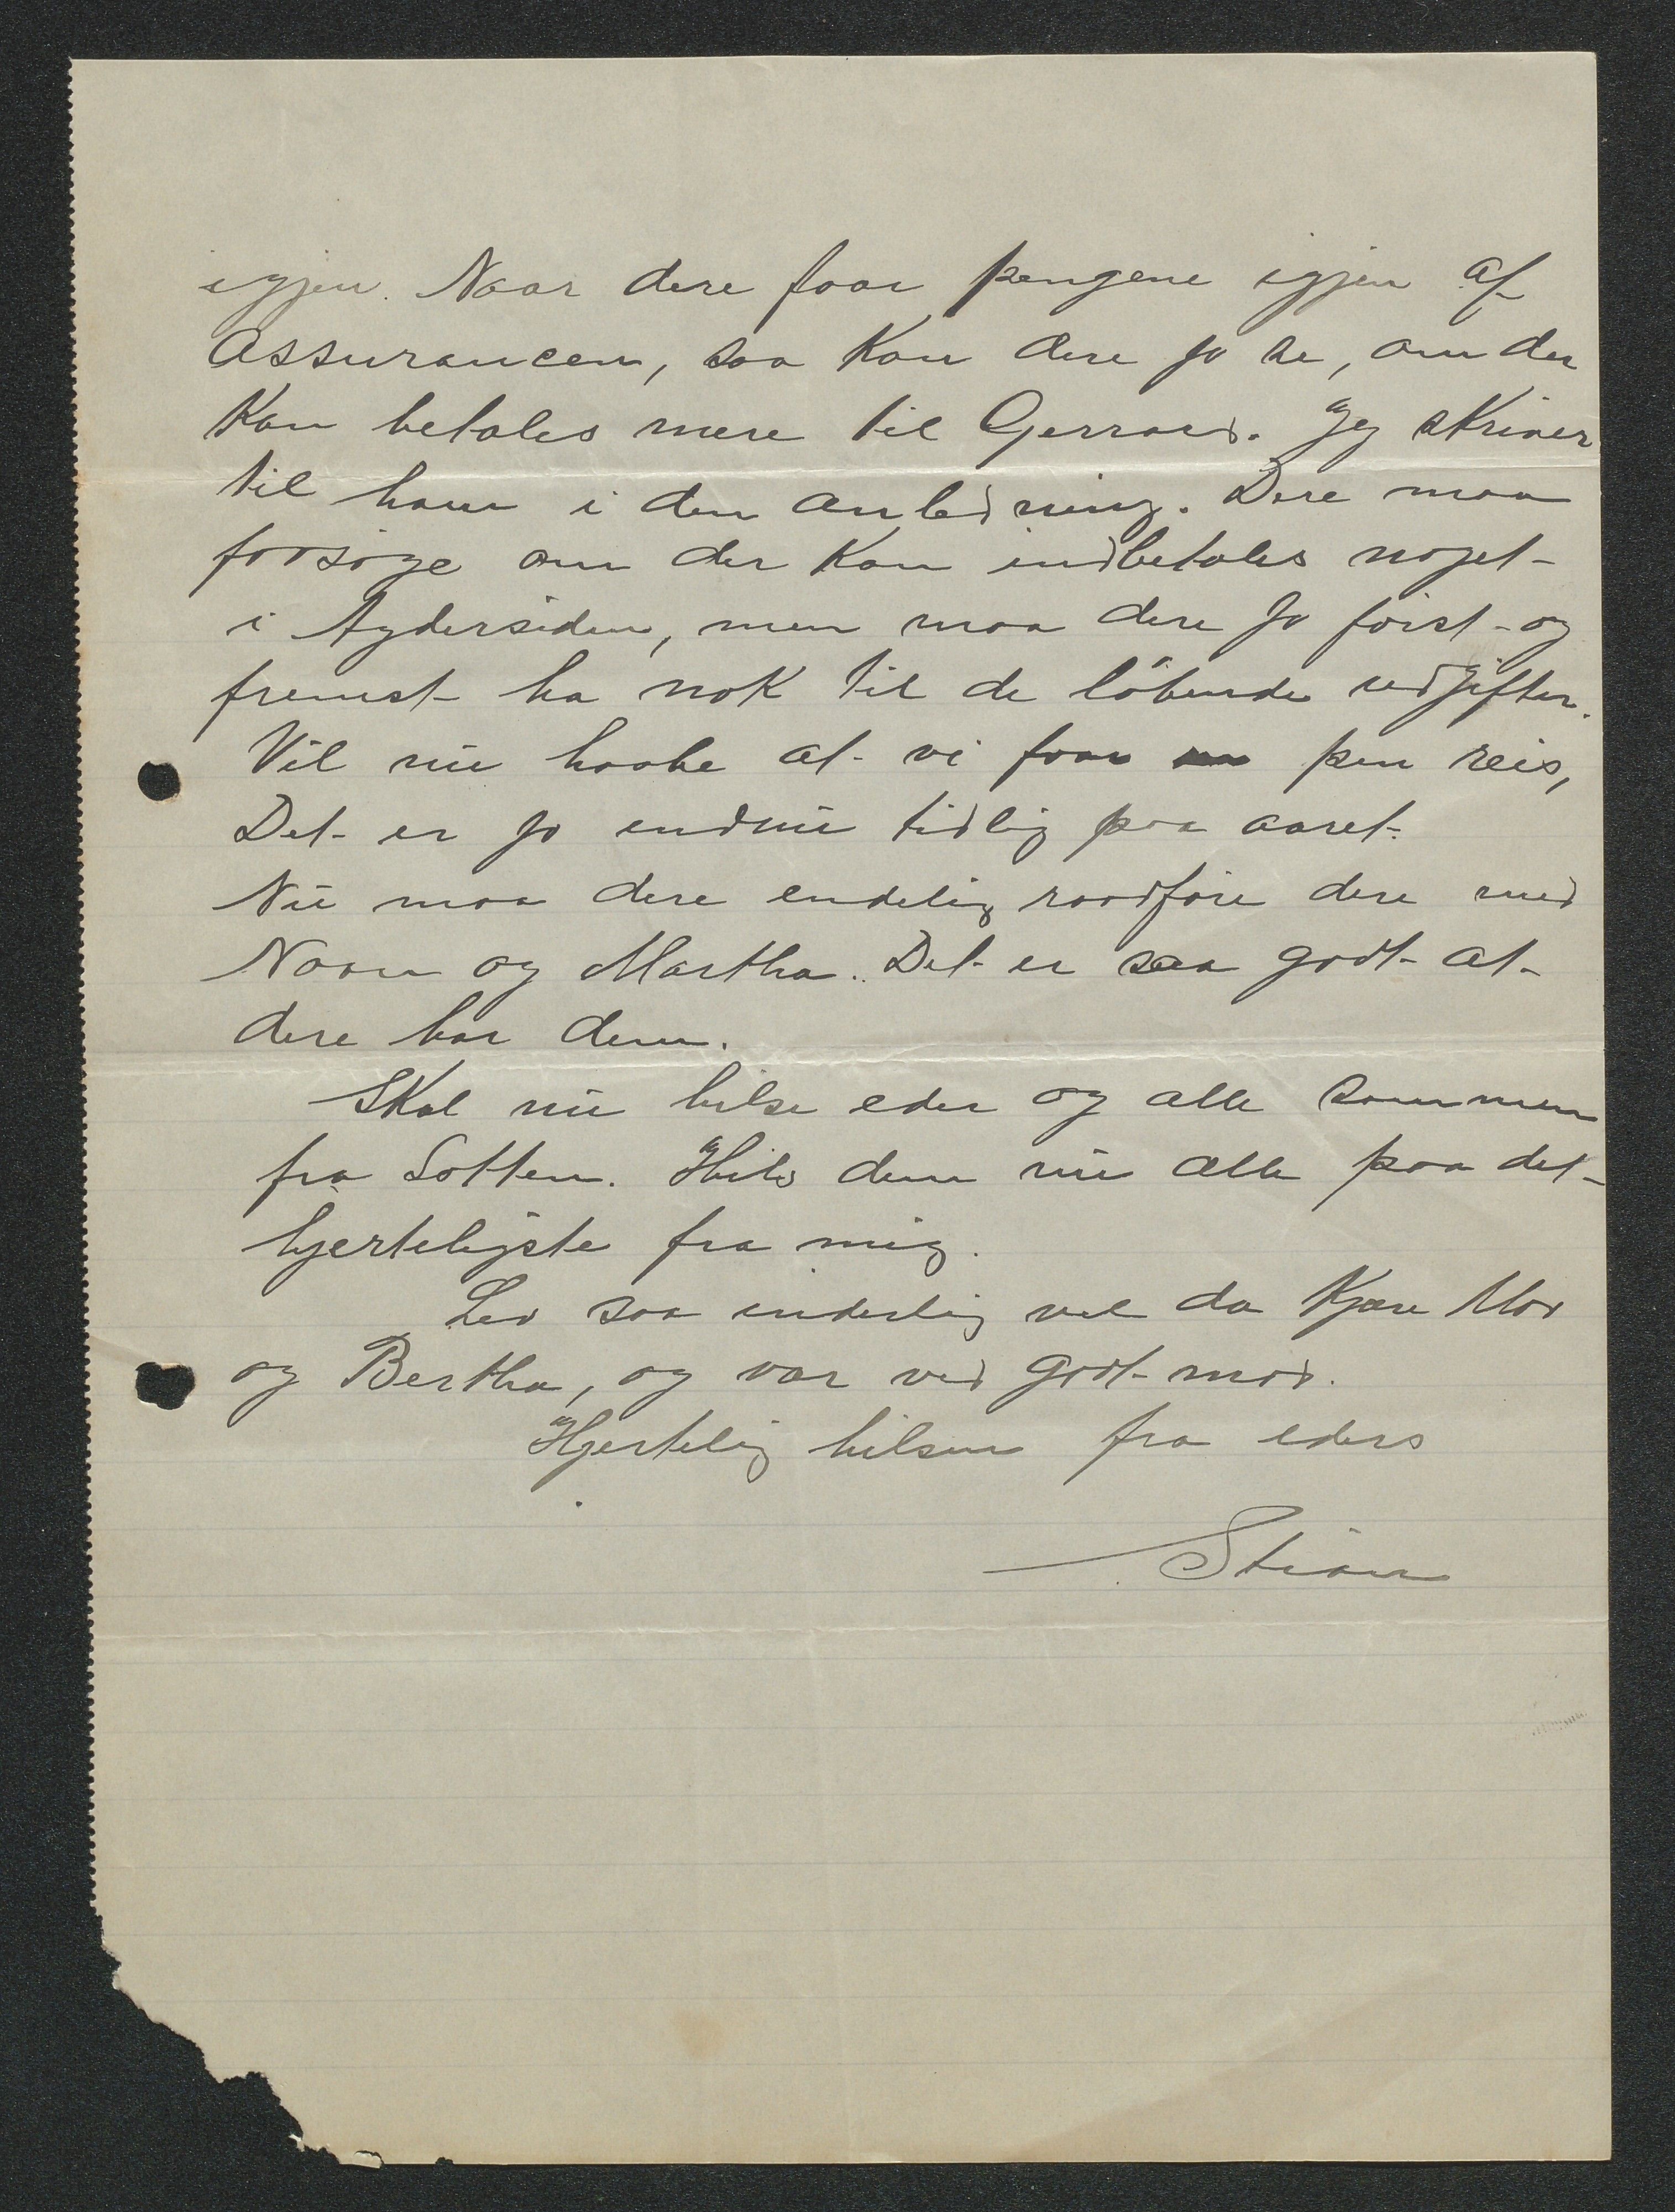 igjen. Naar dere faar pengene igjen af
Assurancen, saa kan dere jo se, om der
kan betales mere til Gerrard. Jeg skriver
til ham i den anledning. Dere maa
forsöge om der kan indbetales noget
i men maa dere jo först og
fremst ha nok til de löbende udgifter.
Vil nu haabe at vi faar en pen reis,
Det er jo endnu tidlig paa aaret.
Nu maa dere endelig raadföre dere med
Naan og Martha. Det er saa godt at
dere har dem.
Skal nu hilse eder og alle sammen
fra Lotten. Hils dem nu alle paa det
hjerteligste fra mig.
Lev saa inderlig vel da Kjære Mor
og Bertha, og vær ved godt mod.
Hjertelig hilsen fra eders
Stian